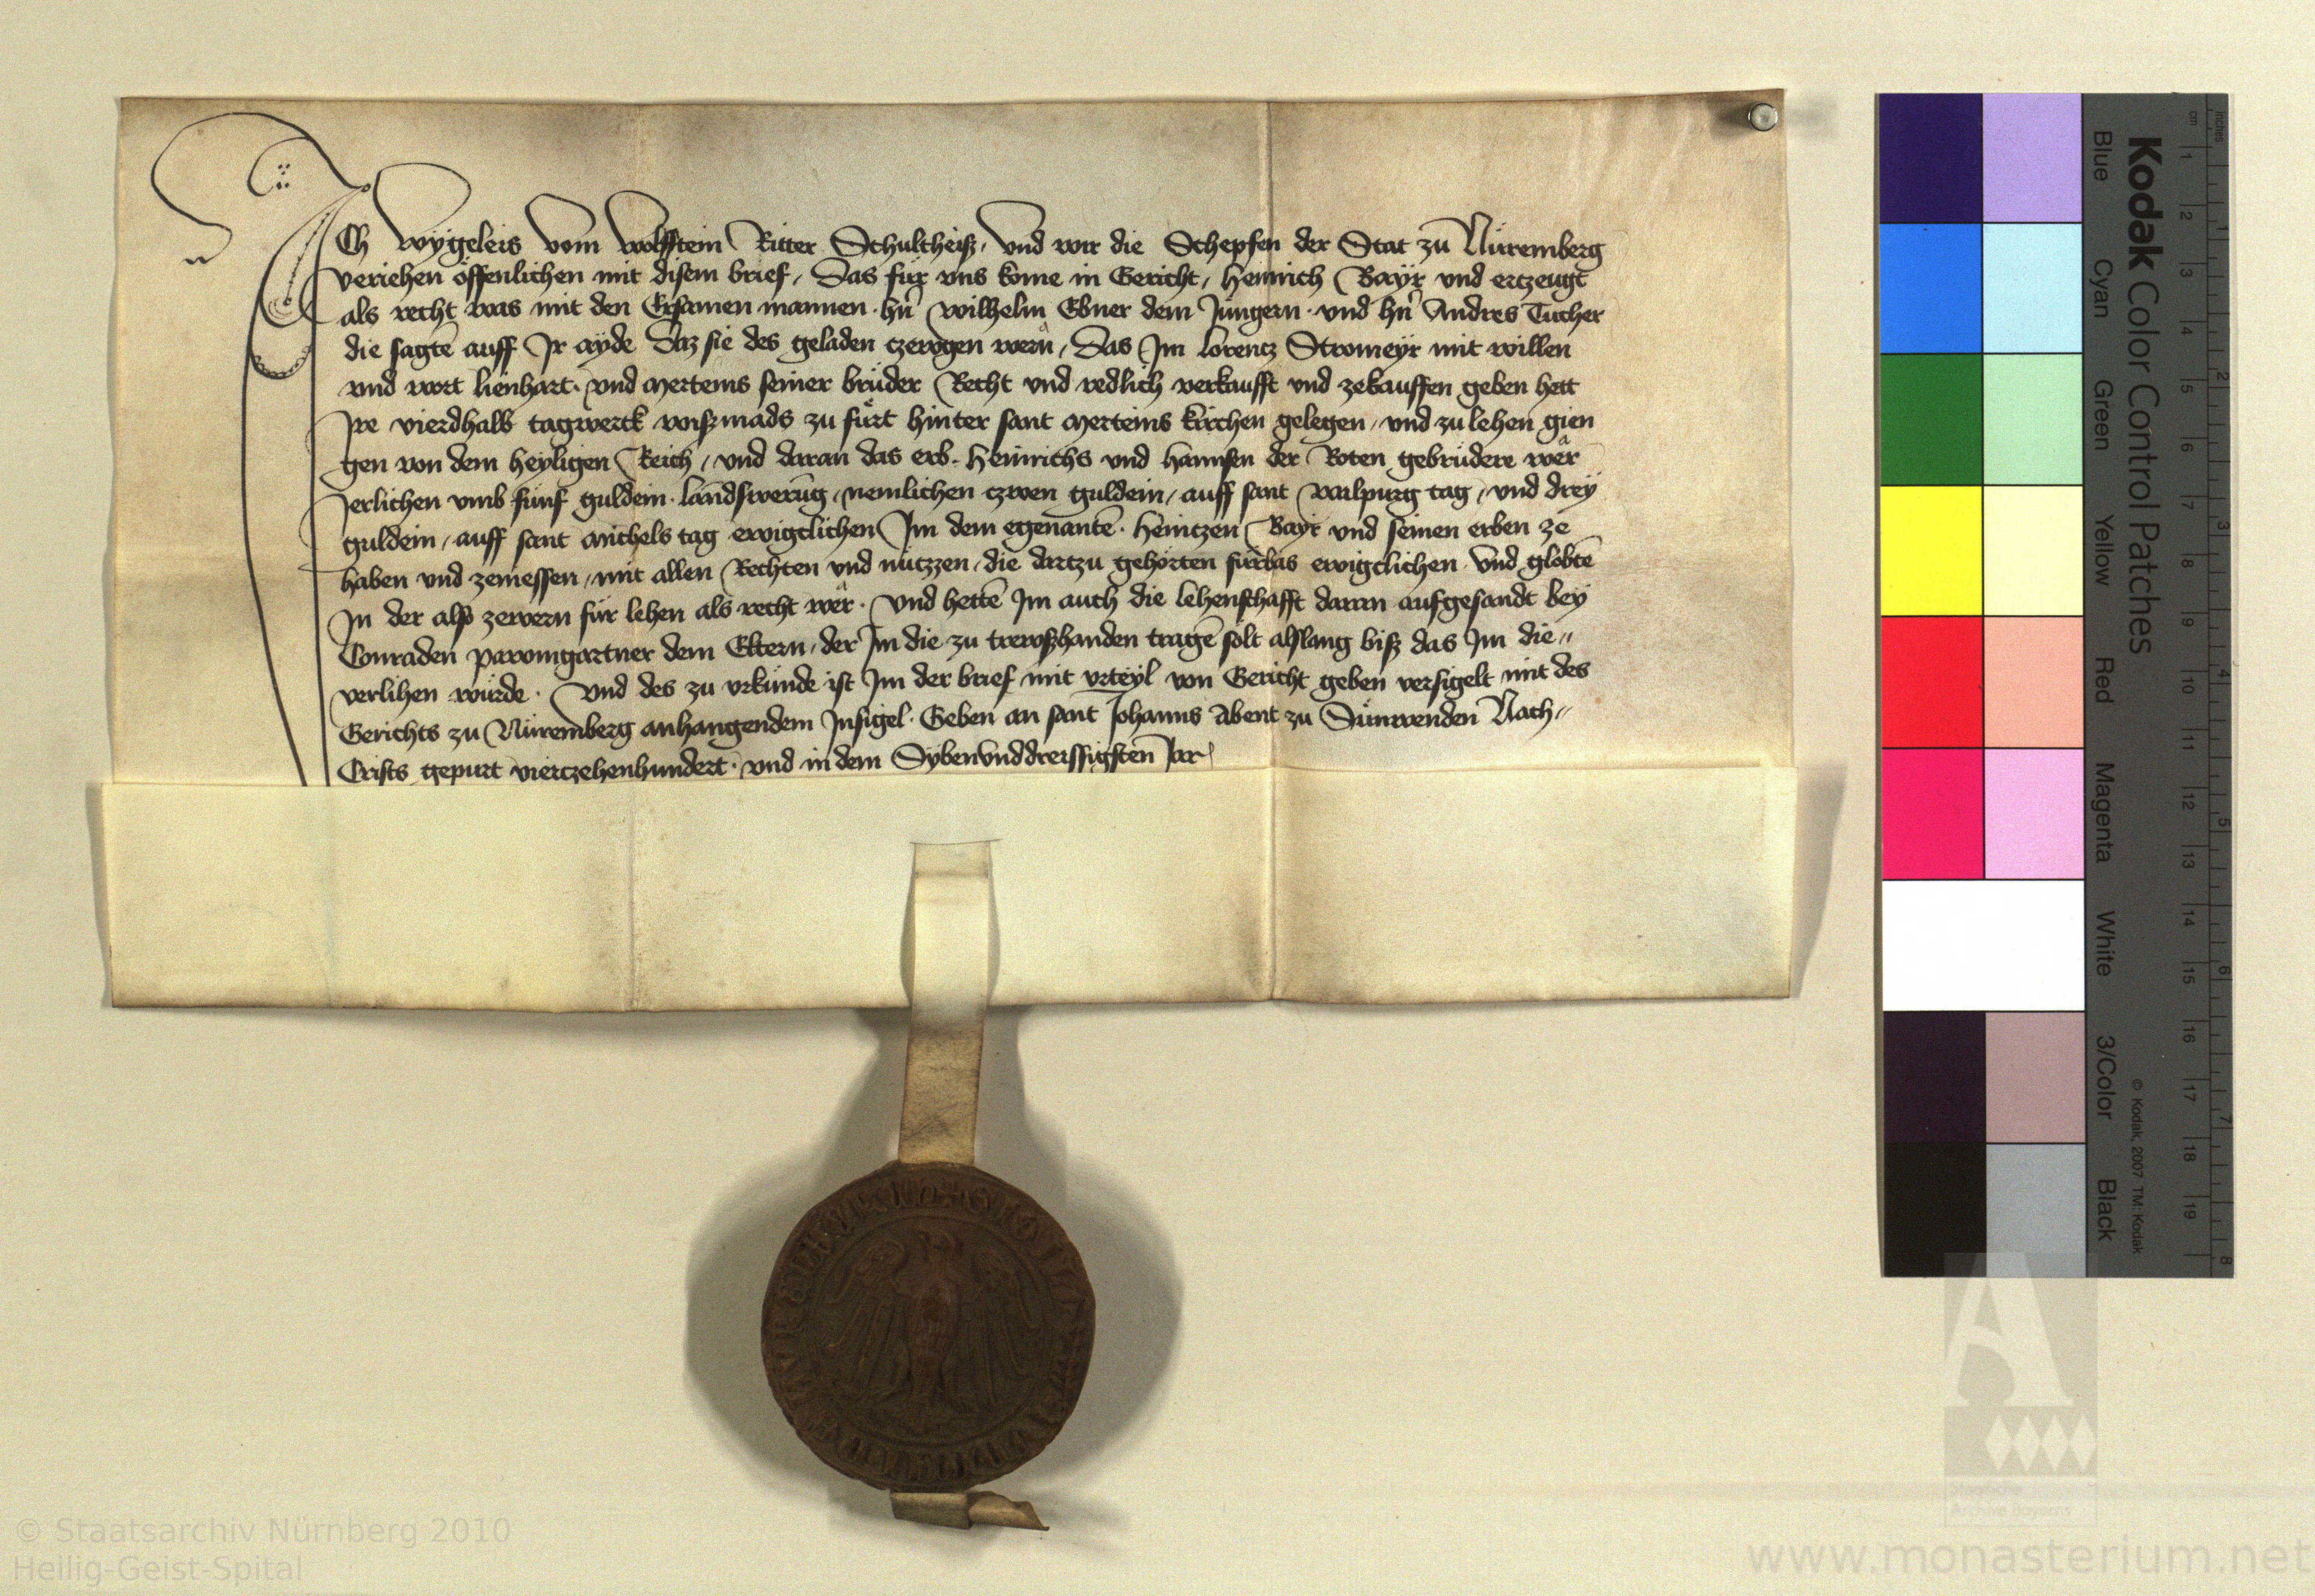 ICh Wygeleis vom Wolffstein Ritter Schultheiß, und wir die Schepfen der Stat zu Nüremberg
veriehen offenlichen mit disem brief, Das für uns kome in Gericht, Heinrich Bayr und ertzeugt
als recht was mit den Ersamen mannen hn̄ Wilhelm Ebner dem Jüngern und hn̄ Andres Tucher
die sagtē auff Jr ayde daz sie des geladen tzewgen wern, Das Jm lorentz Stromeyr mit willen
und wort lienhart und Merteins seiner brüder Recht und redlich verkaufft und zekauffen geben hett
Jre vierdhalb tagwerck wißmads zu fürt hinter sant Merteins kirchen gelegen, und zu lehen gien
gen von dem heyligen Reich, und daran das erb Heinrichs und Hannsen der Roten gebrüdere wer
Jerlichen umb fünf guldein landswerūg, nemlichen tzwen guldein, auff sant walpurg tag, und drey
guldein, auff sant Michels tag ewigclichen Jm dem egenantē Heintzen Bayr und seinen erben ze
haben und zeniessen, mit allen Rechten und nützzen, die dartzu gehörten fürbas ewigclichen Und globtē
Jn der alß zewern für lehen als recht wer. Und hettē Jm auch die lehenschafft daran aufgesandt bey
Conraden pawmgartner dem Eltern, der Jm die zu trewßhanden tragē solt alslang biß das Jm die
verlihen würde. Und des zu urkunde ist Jm der brief mit urteyl von Gericht geben versigelt mit des
Gerichts zu Nüremberg anhangendem Jnsigel. Geben an sant Johanns Abent zu Sunwenden Nach
Crists gepurt viertzehenhundert und in dem Sybenunddreissigsten Jar
Kodak Color Control Patches
Blue Cyan Green Yellow Red Magenta White 3/Color Black
© Kodak, 2007 TM: Kodak
cm 1 2 3 4 5 6 7 8 9 10 11 12 13 14 15 16 17 18 19
inches 1 2 3 4 5 6 7 8
Staatliche
Archive Bayerns
© Staatsarchiv Nürnberg 2010
Heilig-Geist-Spital
www.monasterium.net